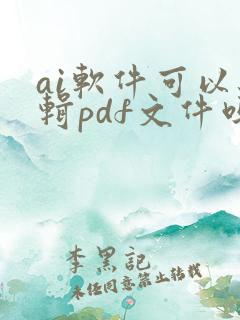 ai軟件可以
輯pdf文件
李黑記
未任同意禁止转载